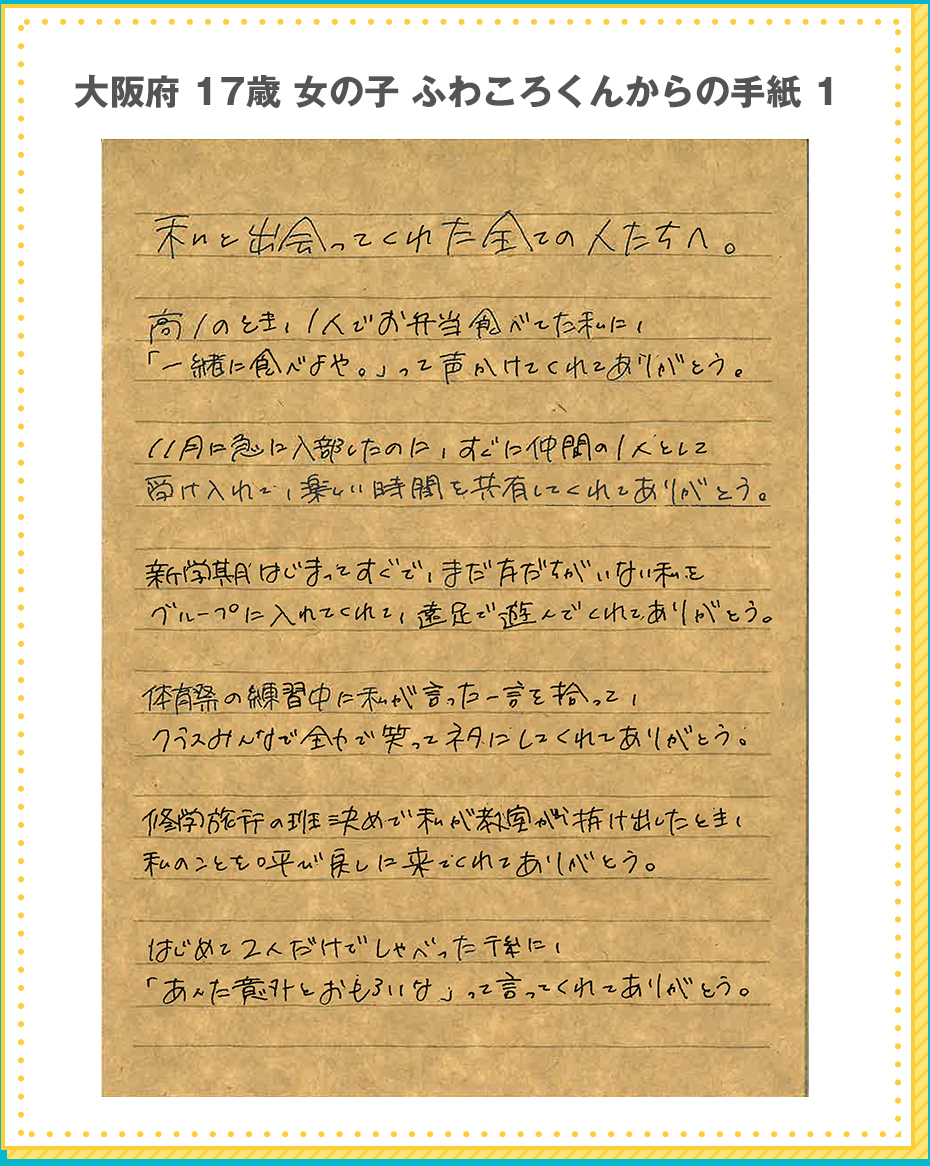 大阪府 17歳 女の子 ふわころくんからの手紙 1
私と出会ってくれた全ての人たちへ。
高1のとき、1人でお弁当食べてた私に、
「一緒に食べよや。」って声かけてくれてありがとう。
11月に急に入部したのに、すぐに仲間の1人として
受け入れて、楽しい時間を共有してくれてありがとう。
新学期はじまってすぐで、まだ友だちがいない私を
グループに入れてくれて、遠足で遊んでくれてありがとう。
体育祭の練習中に私が言った一言を拾って、
クラスみんなで全力で笑ってネタにしてくれてありがとう。
修学旅行の班決めで私が教室から抜け出したとき、
私のことを呼び戻しに来てくれてありがとう。
はじめて2人だけでしゃべった後に、
「あんた意外とおもろいな」って言ってくれてありがとう。